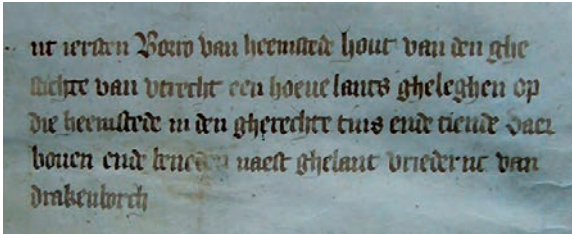 nt iersten Borro van heemstede hout van den ghe
stichte van vtrecht een hoeue lants gheleghen op
die heemstede in den gherechte tins ende tiende daer
bouen ende beneden naest ghelant vrederic van
drakenborch